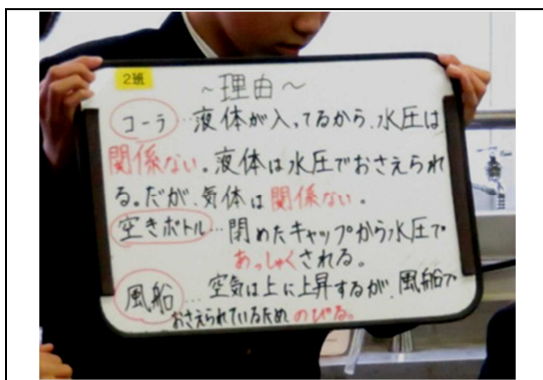 2班
～理由～
コーラ…液体が入ってるから、水圧は
関係ない。液体は水圧でおさえられ
る。だが、気体は関係ない。
空きボトル…閉めたキャップから水圧で
あっしゅくされる。
風船…空気は上に上昇するが、風船で
おさえられているため のびる。